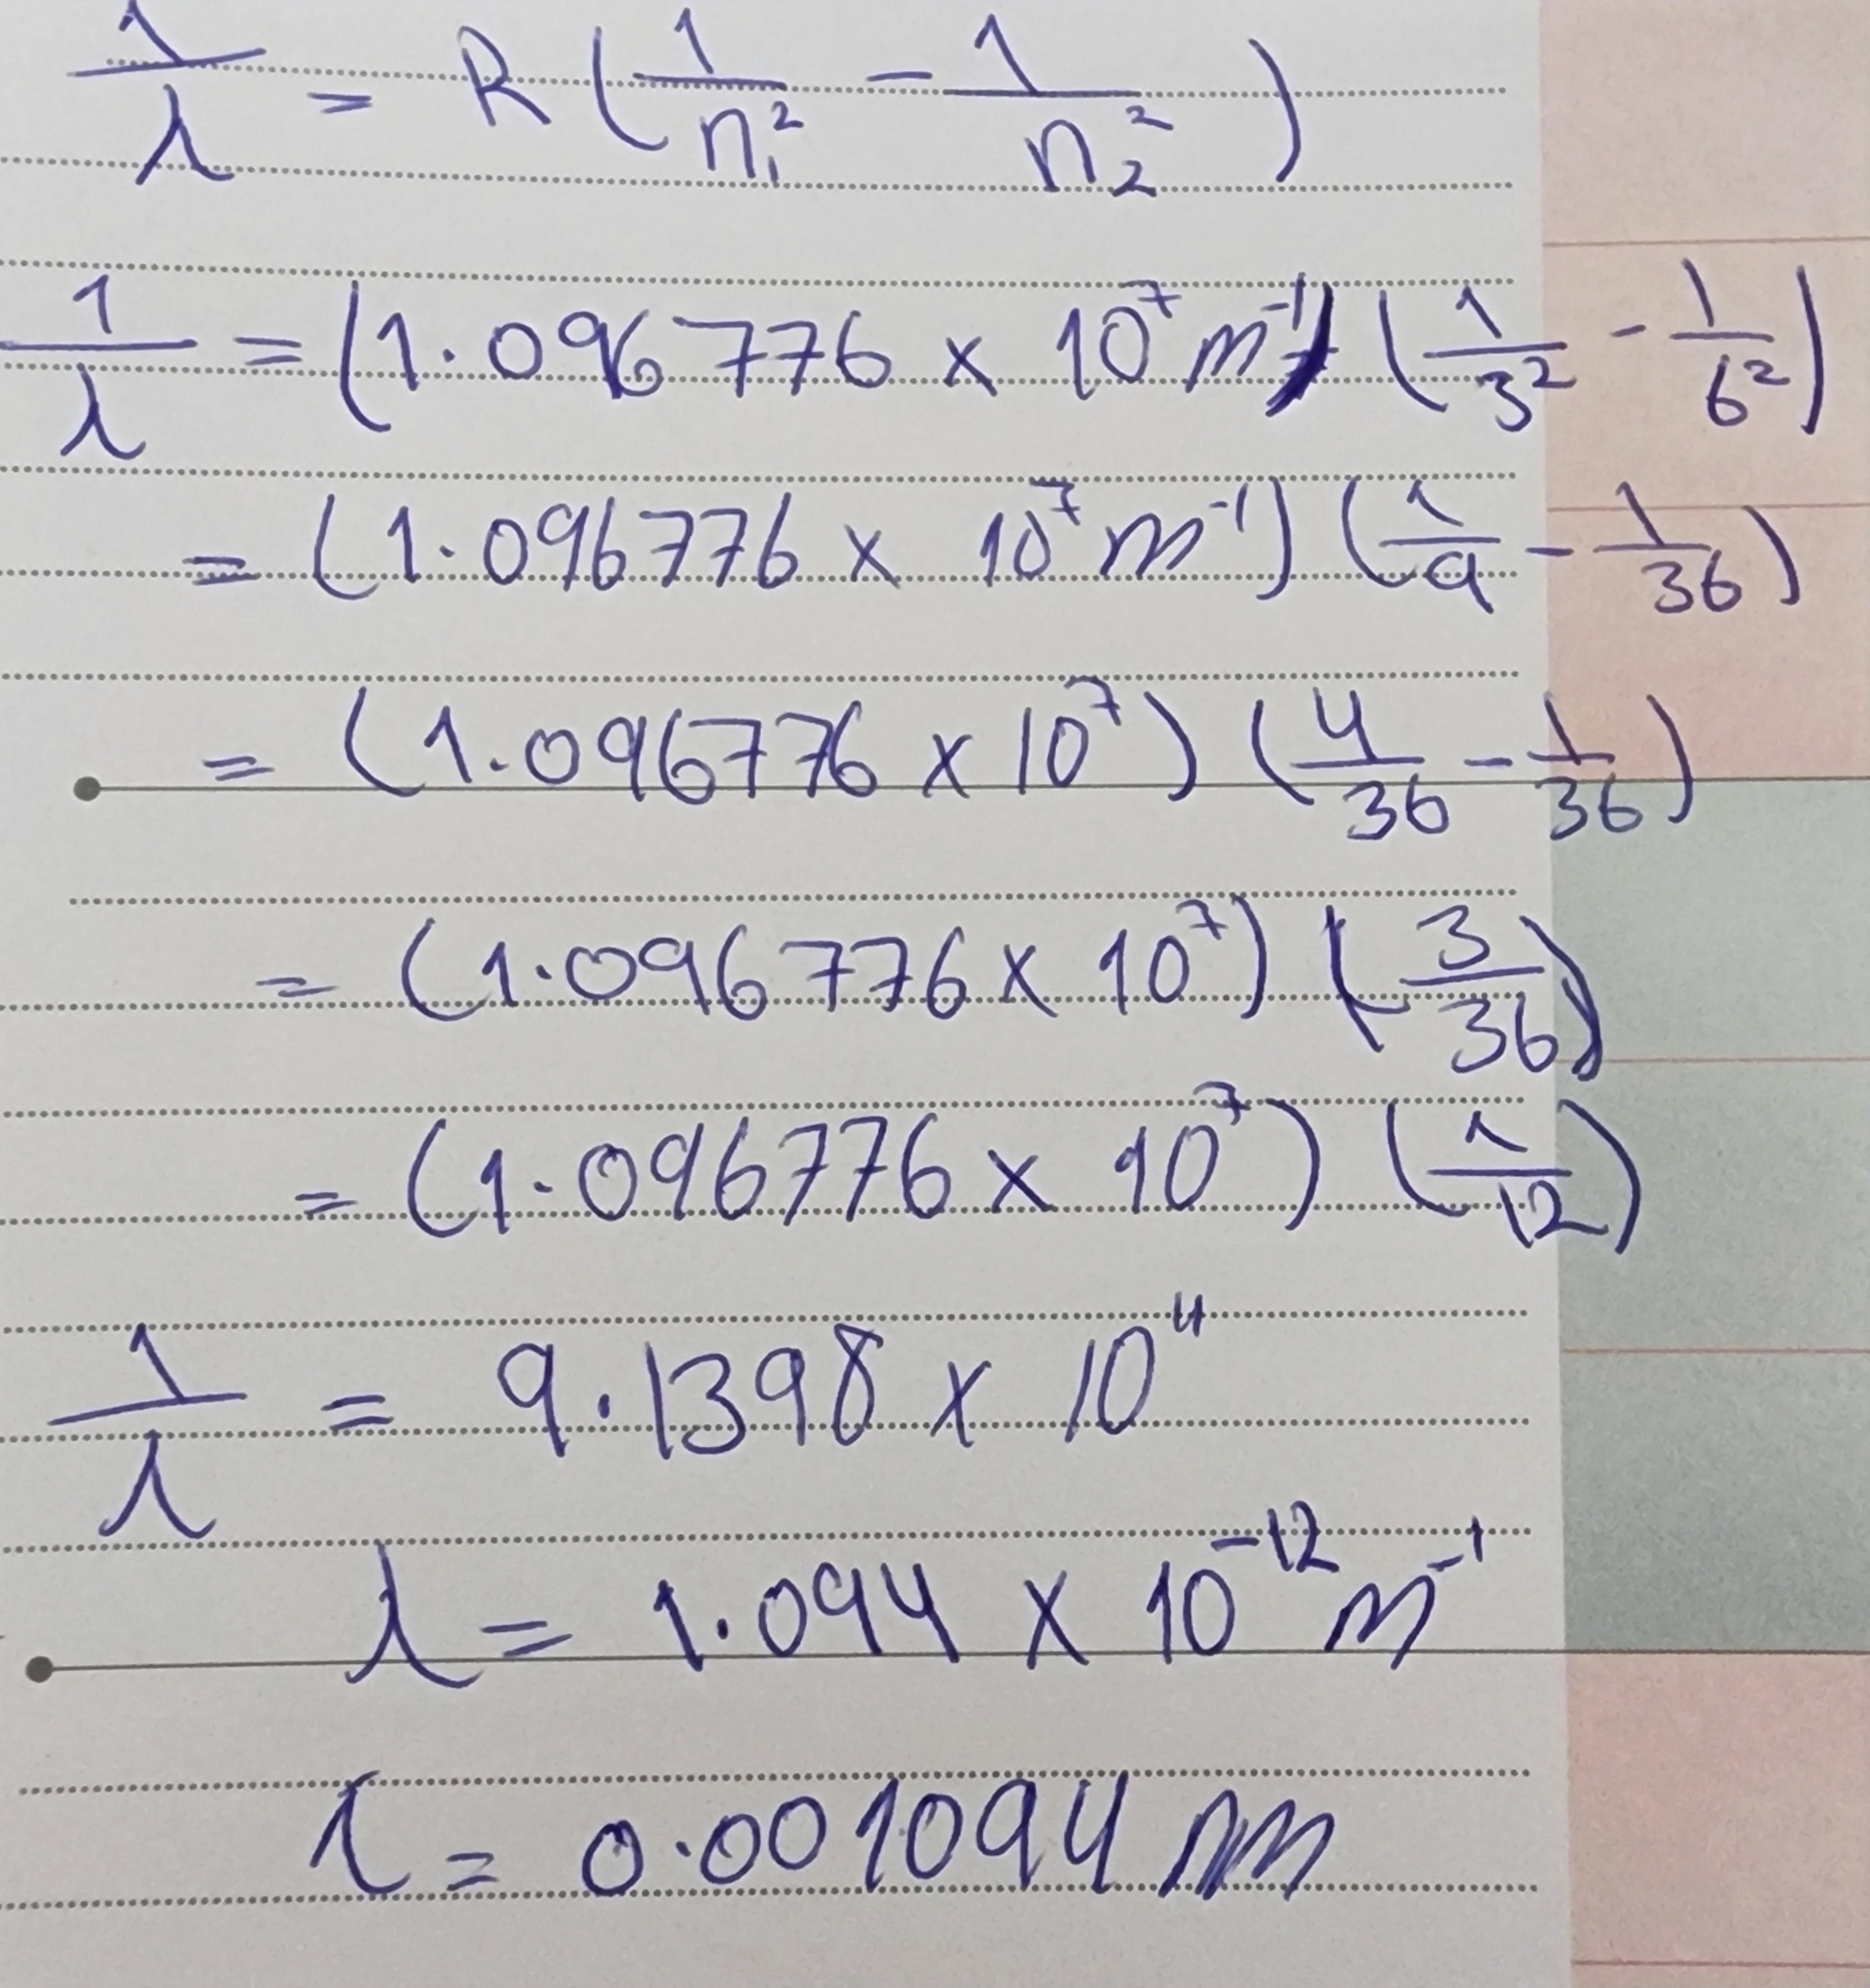 1/λ = R (1/n₁² − 1/n₂²)
1/λ = (1.096776 × 10⁷ m⁻¹) (1/3² − 1/6²)
= (1.096776 × 10⁷ m⁻¹) (1/9 − 1/36)
= (1.096776 × 10⁷) (4/36 − 1/36)
= (1.096776 × 10⁷) (3/36)
= (1.096776 × 10⁷) (1/12)
1/λ = 9.1398 × 10¹¹
λ = 1.094 × 10⁻¹² m⁻¹
λ = 0.001094 nm